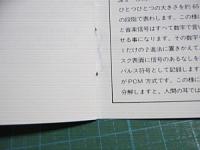 ひとつひとつの大きさを約 65
の段階で表わします。この様に
と音楽信号はすべて数字で言い
せる事になります。その数字を
1だけの2進法に置きかえて、
スク表面に信号のあるなしを
パルス符号として記録します
がPCM方式です。この様に
分解しますと、人間の耳では